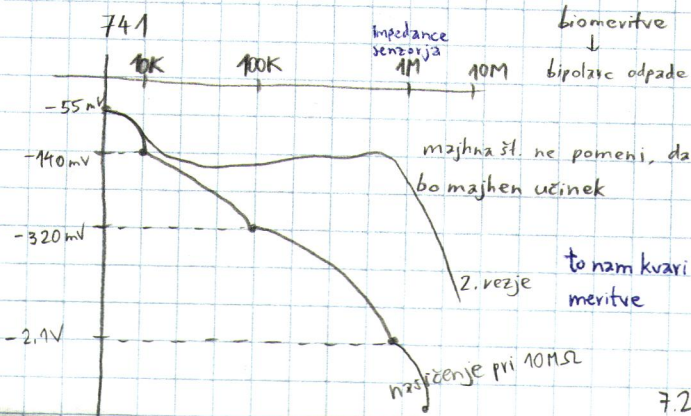 741
impedance
senzorja
10K 100K 1M 10M
biomeritve
↓
bipolarc odpade
-55mV
-140mV
-320mV
-2.1V
majhna št. ne pomeni, da
bo majhen učinek
2. vezje
to nam kvari
meritve
nasičenje pri 10MΩ
7.2